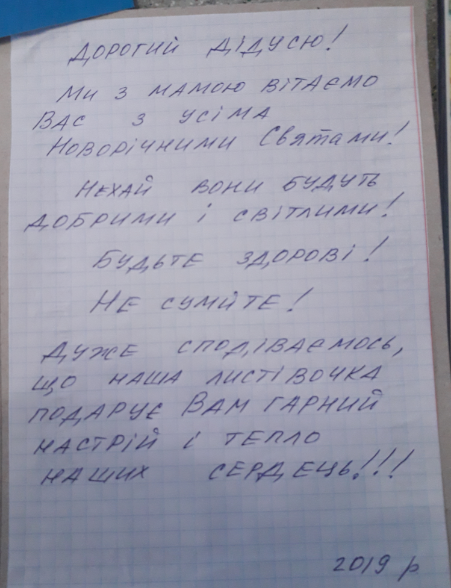 Дорогий дідусю!
Ми з мамою вітаємо
Вас з усіма
Новорічними Святами!
Нехай вони будуть
добрими і світлими!
Будьте здорові!
Не сумуйте!
Дуже сподіваємось,
що наша листівочка
подарує Вам гарний
настрій і тепло
наших сердець!!!
2019 р